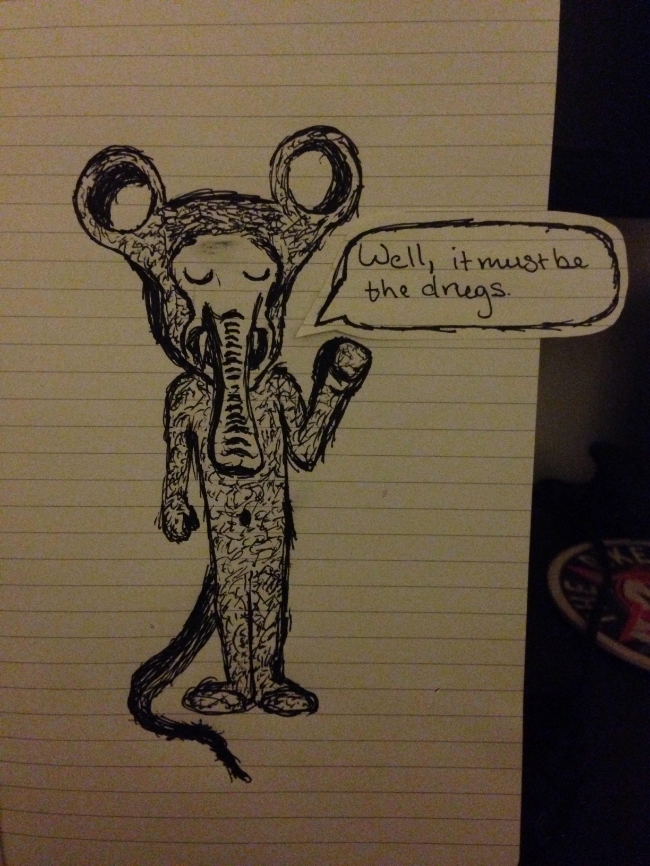 Well, it must be
the drugs.